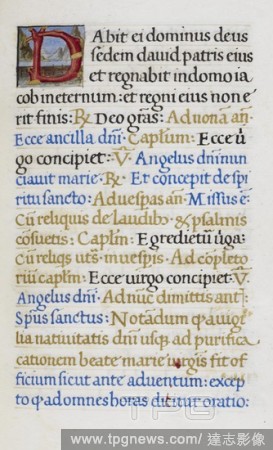 Dabit ei dominus deus
sedem dauid patris eius
et regnabit indomo ia
cob ineternum: et regni eius non e
rit finis: ℞ Deo grãs: Ad uonã añ:
Ecce ancilla dñi: Caplum: Ecce ui
go concipiet: ℣ Angelus dñi nun
ciauit marie: ℞: Et concepit de spi
ritu sancto: Ad uespas añ: Missus e:
Cũ reliquis de laudib: & psalmis
cõsuetis: Caplm: Egredietur ũga:
Cũ reliqs uts: in uespis: Ad copleto
riũ caplm: Ecce uirgo concipiet: ℣
Angelus dñi: Ad nunc dimittis anti:
Spũs sanctus: Notãdum q a uigi
lia natiuitatis dñi usq ad purifica
cationem beate marie uirgis fit of
ficium sicut ante aduentum: excep
to q ad omnes horas dicitur oratio:
TPG
www.tpgnews.com/達志影像